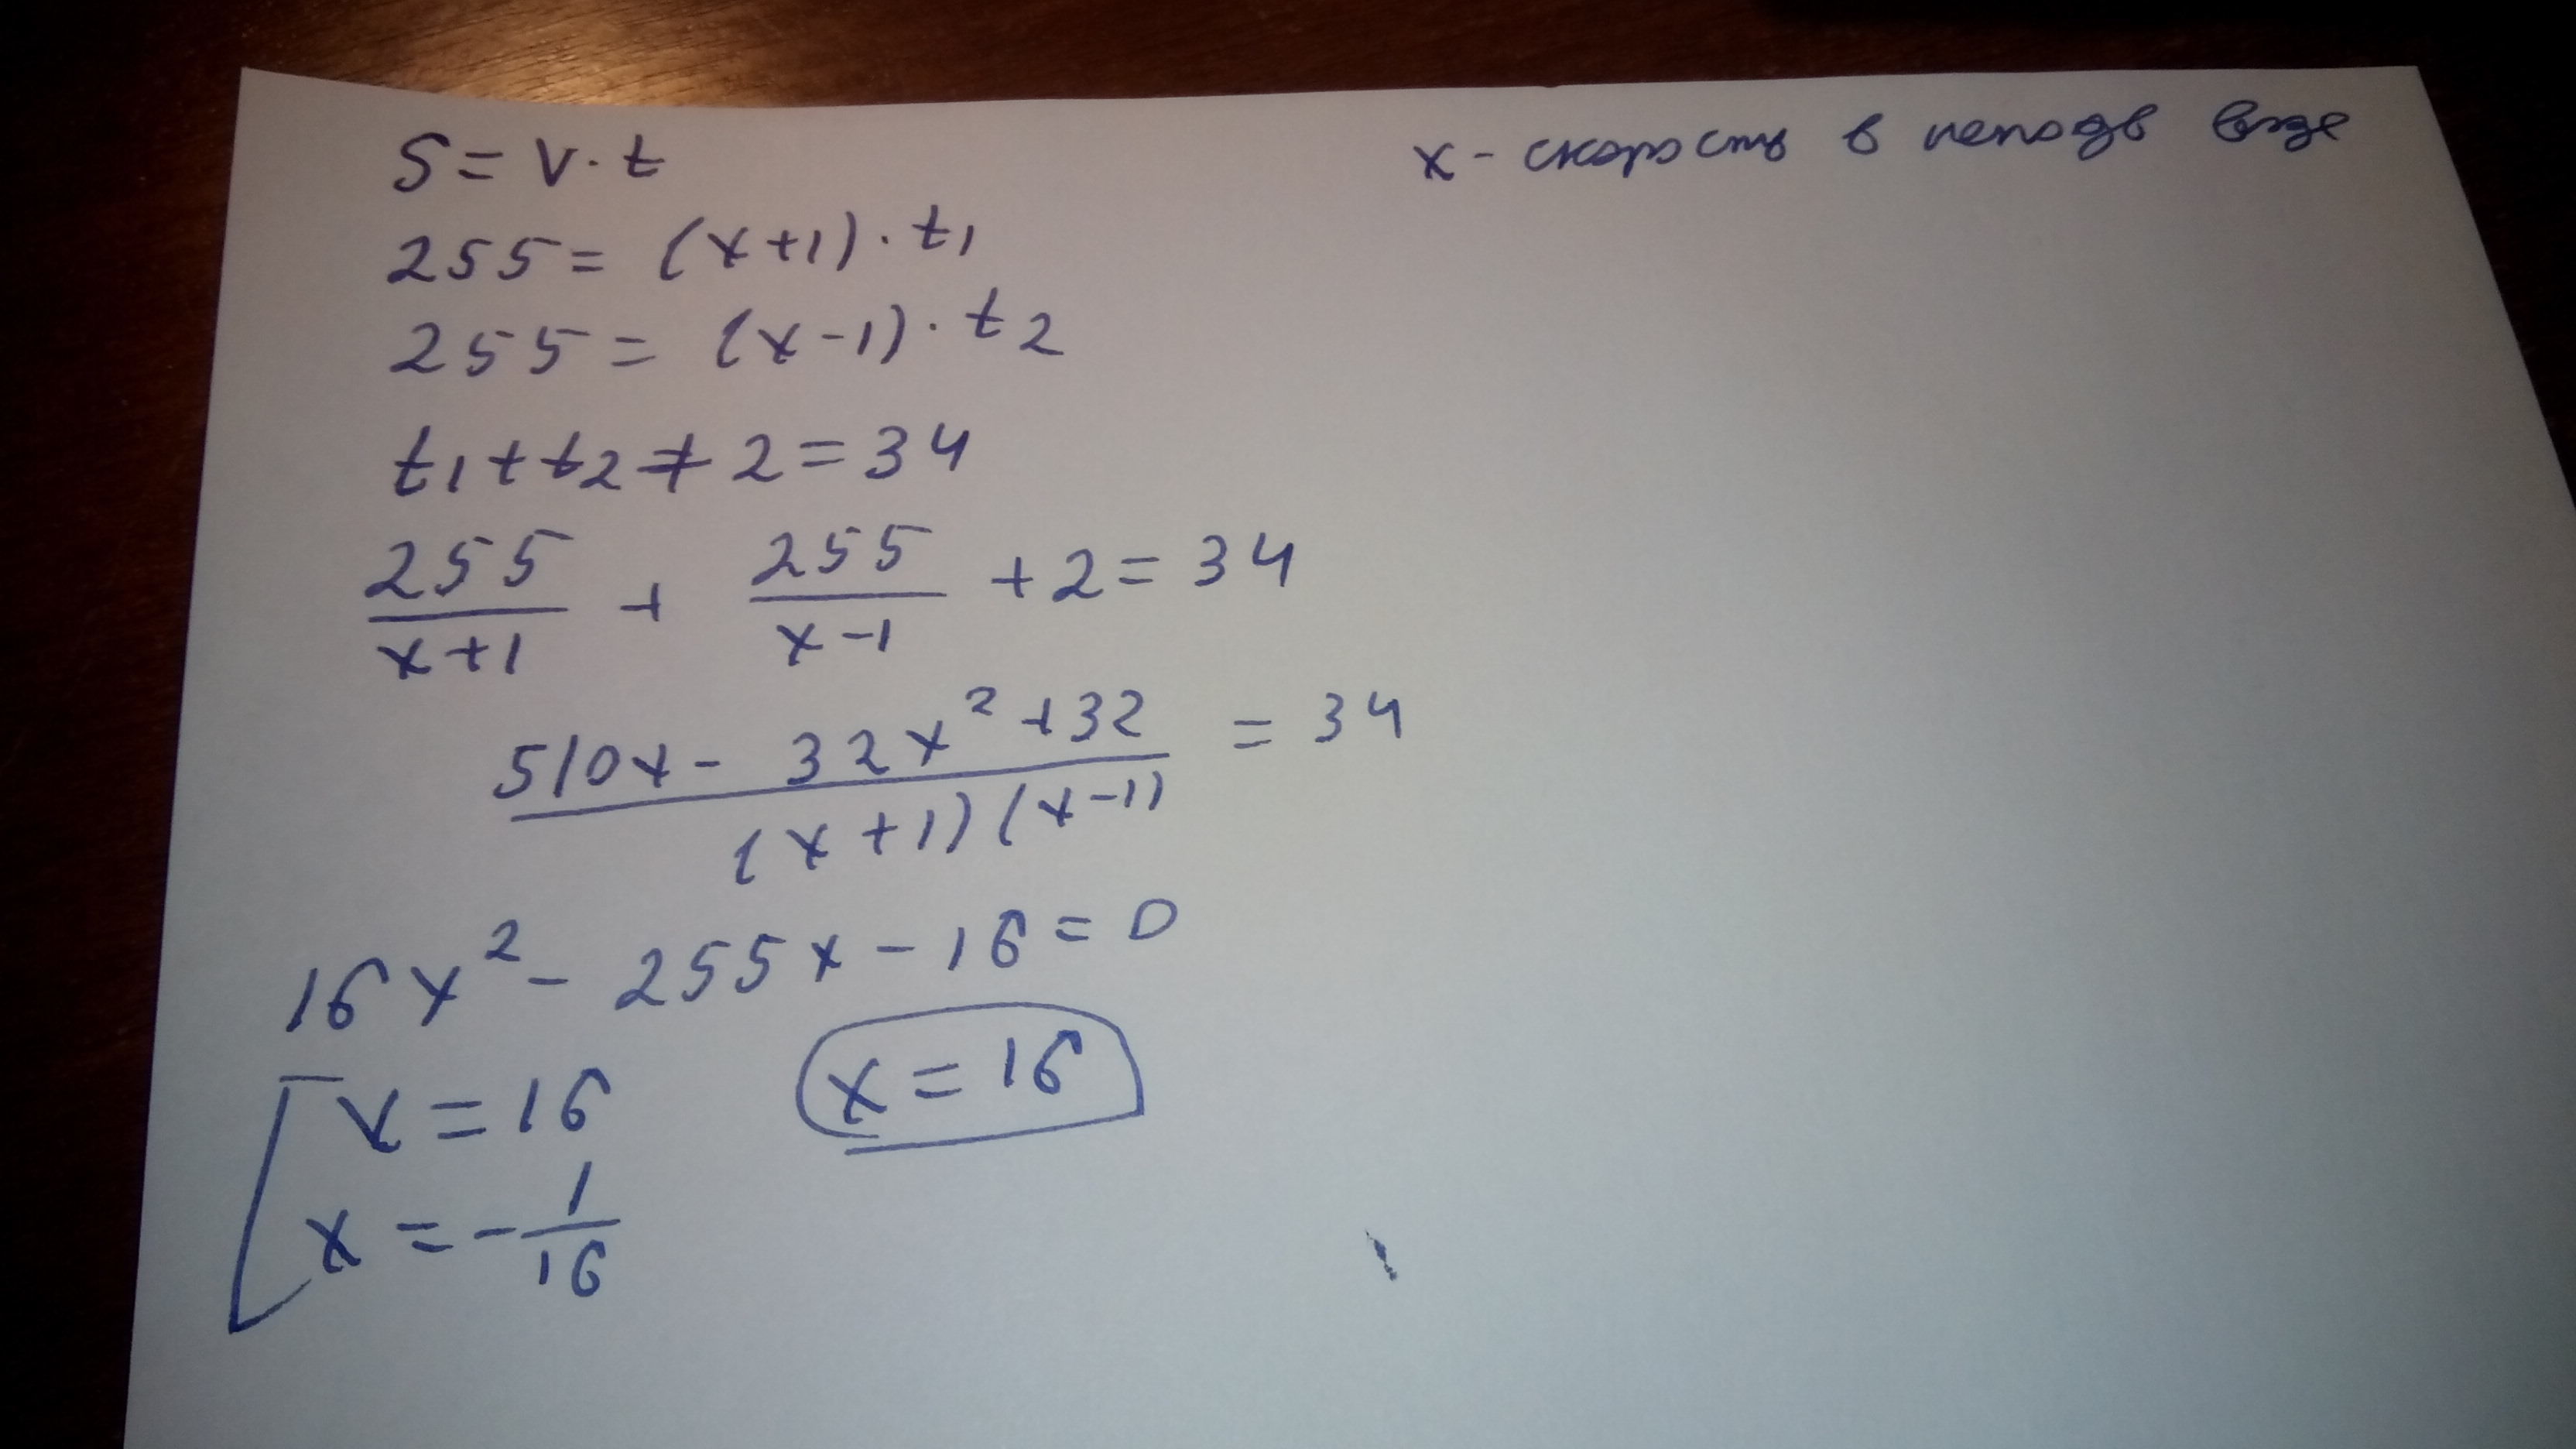 S = v · t
x - скорость в неподв воде
255 = (x+1) · t₁
255 = (x-1) · t₂
t₁ + t₂ + 2 = 34
255/(x+1) + 255/(x-1) + 2 = 34
(510x - 32x² + 32)/((x+1)(x-1)) = 34
16x² - 255x - 16 = 0
[ x = 16
x = 16
x = -1/16